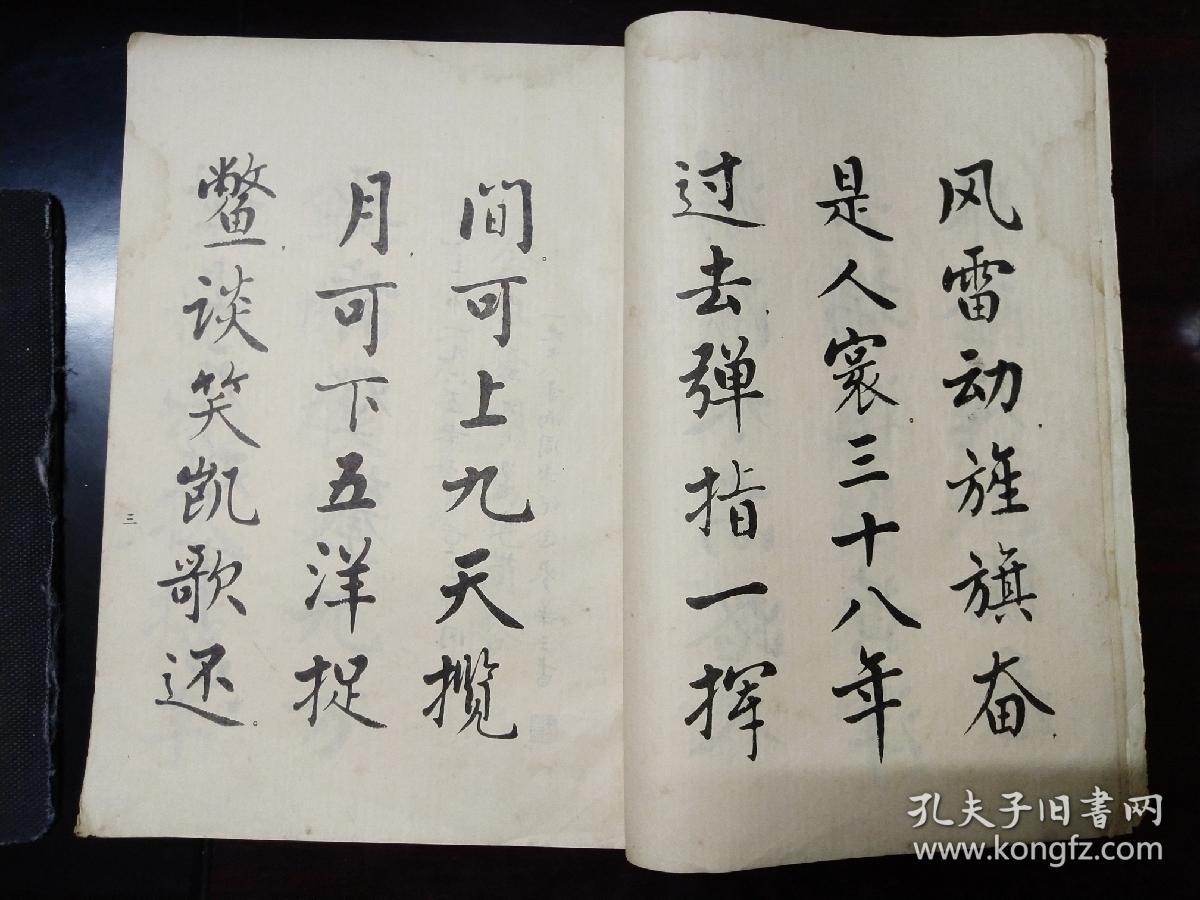 风雷动。旌旗奋
是人寰。三十八年
过去。弹指一挥
间。可上九天揽
月。可下五洋捉
鳖。谈笑凯歌还。
三
孔夫子旧书网
www.kongfz.com